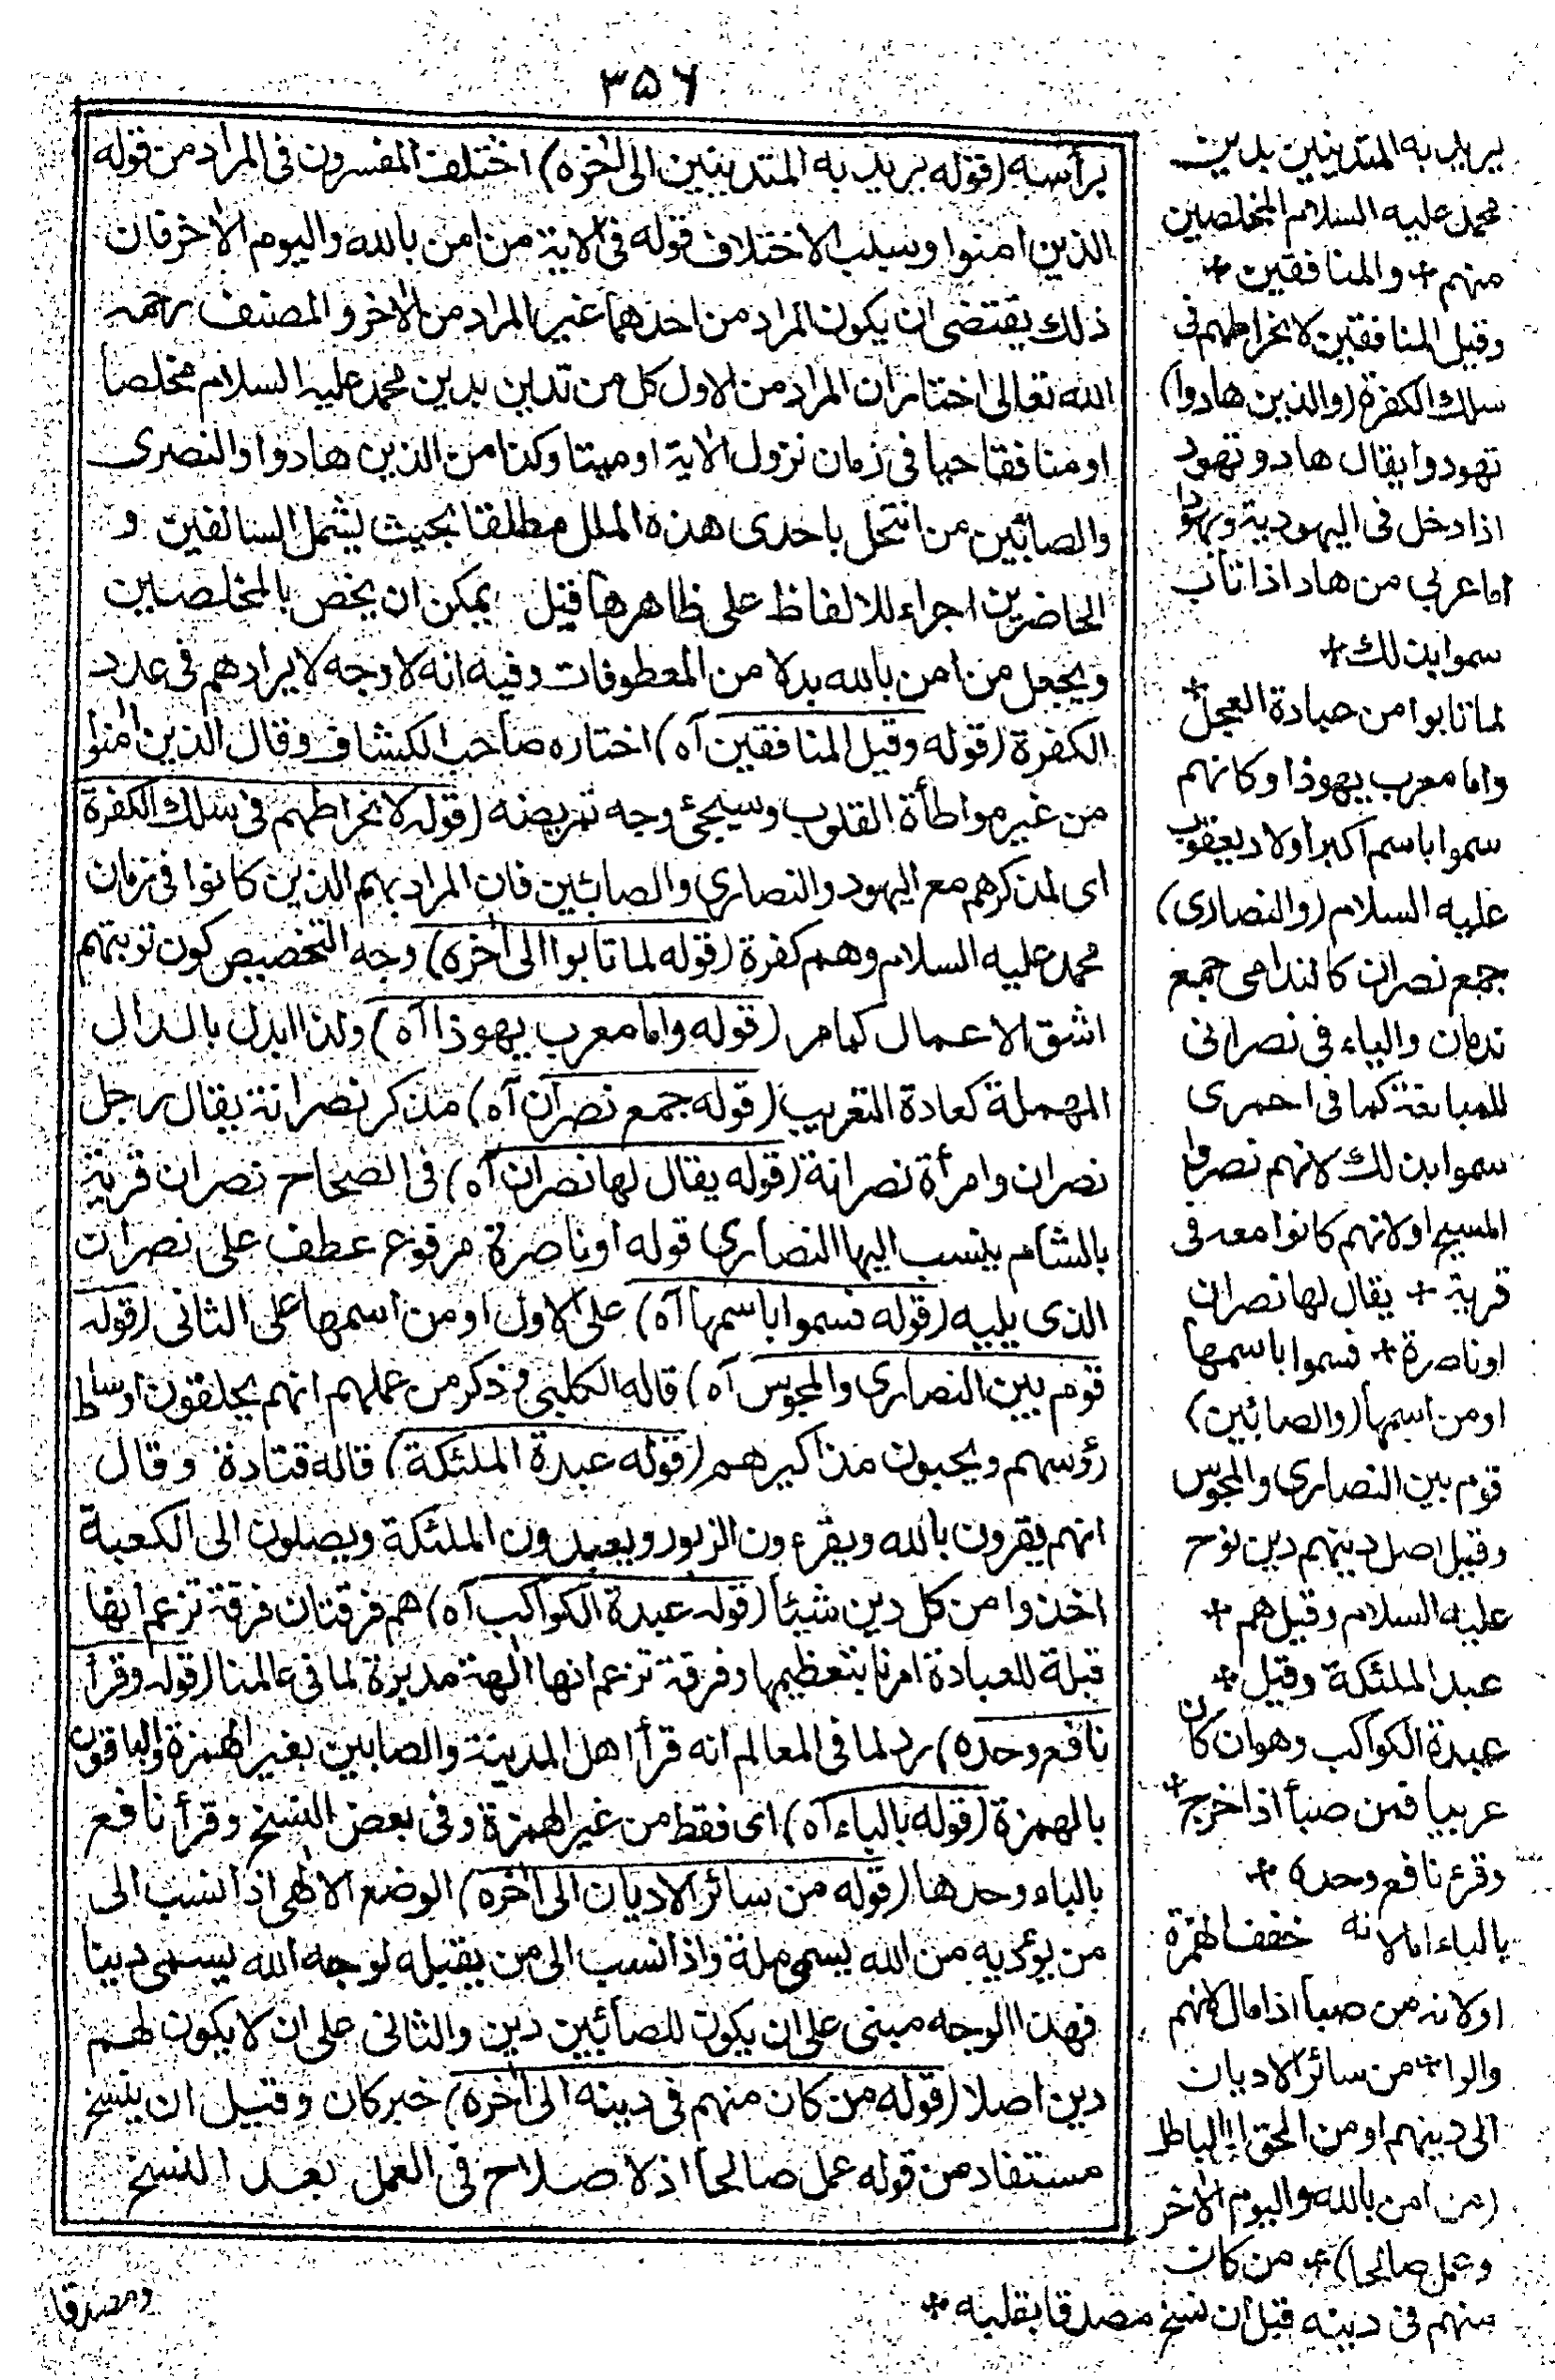 ٣٥٦
برأسه (قوله يريد به المتدينين الى اٰخره) اختلف المفسرون فى المراد من قوله
الذين اٰمنوا وسبب الاختلاف قوله فى الاٰية من اٰمن بالله واليوم الاٰخر فان
ذلك يقتضى ان يكون المراد من احدهما غير المراد من الاٰخر والمصنف رحمه
الله تعالى اختار ان المراد من الاول كل من تدين بدين محمد عليه السلام مخلصا
او منافقا حيا فى زمان نزول الاٰية او ميتا وكذا من الذين هادوا والنصرى
والصائبين من انتحل باحدى هذه الملل مطلقا بحيث يشمل السالفين و
الحاضرين اجراء للالفاظ على ظاهرها قيل يمكن ان يخص بالمخلصين
ويجعل من اٰمن بالله بدلا من المعطوفات وفيه انه لا وجه لايرادهم فى عدد
الكفرة (قوله وقيل المنافقين آه) اختاره صاحب الكشاف وقال الذين اٰمنوا
من غير مواطأة القلوب وسيجئ وجه تمريضه (قوله لانخراطهم فى سلك الكفرة
اى لذكرهم مع اليهود والنصارى والصابئين فان المراد بهم الذين كانوا فى زمان
محمد عليه السلام وهم كفرة (قوله لما تابوا الى اٰخره) وجه التخصيص كون توبتهم
اشق الاعمال كما مر (قوله واما معرب يهوذا آه) ولذا ابدل بالدال
المهملة كعادة التعريب (قوله جمع نصران آه) مذكر نصرانة يقال رجل
نصران وامرأة نصرانة (قوله يقال لها نصران آه) فى الصحاح نصران قرية
بالشام ينسب اليها النصارى قوله او ناصرة مرفوع عطف على نصران
الذى يليه (قوله فسموا باسمها آه) على الاول او من اسمها على الثانى (قوله
قوم بين النصارى والمجوس آه) قاله الكلبى وذكر من عملهم انهم يحلقون اوساط
رؤسهم ويجبون مذاكيرهم (قوله عبدة الملئكة) قاله قتادة وقال
انهم يقرون بالله ويقرءون الزبور ويعبدون الملئكة ويصلون الى الكعبة
اخذوا من كل دين شيئا (قوله عبدة الكواكب آه) هم فرقتان فرقة تزعم انها
قبلة للعبادة امرنا بتعظيمها وفرقة تزعم انها اٰلهة مدبرة لما فى عالمنا (قوله وقرأ
نافع وحده) رد لما فى المعالم انه قرأ اهل المدينة والصابين بغير الهمزة والباقون
بالهمزة (قوله بالياء آه) اى فقط من غير الهمزة وفى بعض النسخ وقرأ نافع
بالياء وحدها (قوله من سائر الاديان الى اٰخره) الوضع الالٰهى اذا نسب الى
من يؤديه من الله يسمى ملة واذا نسب الى من يقبله لوجه الله يسمى دينا
فهذا الوجه مبنى على ان يكون للصائبين دين والثانى على ان لا يكون لهم
دين اصلا (قوله من كان منهم فى دينه الى اٰخره) خبر كان وقبل ان ينسخ
مستفاد من قوله عمل صالحا اذ لا صلاح فى العمل بعد النسخ
ومصدقا
يريد به المتدينين بدين
محمد عليه السلام المخلصين
منهم + والمنافقين +
وقيل المنافقين لانخراطهم فى
سلك الكفرة (والذين هادوا)
تهودوا يقال هاد وتهود
اذا دخل فى اليهودية ويهود
اما عربى من هاد اذا تاب
سموا بذلك +
لما تابوا من عبادة العجل +
واما معرب يهوذا وكانهم
سموا باسم اكبر اولاد يعقوب
عليه السلام (والنصارى)
جمع نصران كالندامى جمع
ندمان والياء فى نصرانى
للمبالغة كما فى احمرى
سموا بذلك لانهم نصروا
المسيح او لانهم كانوا معه فى
قرية + يقال لها نصران
او ناصرة + فسموا باسمها
او من اسمها (والصائبين)
قوم بين النصارى والمجوس
وقيل اصل دينهم دين نوح
عليه السلام وقيل هم +
عبد الملئكة وقيل +
عبدة الكواكب وهو ان كان
عربيا فمن صبأ اذا خرج +
وقرء نافع وحده +
بالياء اما لانه خفف الهمزة
او لانه من صبا اذا مال لانهم
مالوا + من سائر الاديان
الى دينهم او من الحق الى الباطل
(من اٰمن بالله واليوم الاٰخر
وعمل صالحا) + من كان
منهم فى دينه قبل ان نسخ مصدقا بقلبه +